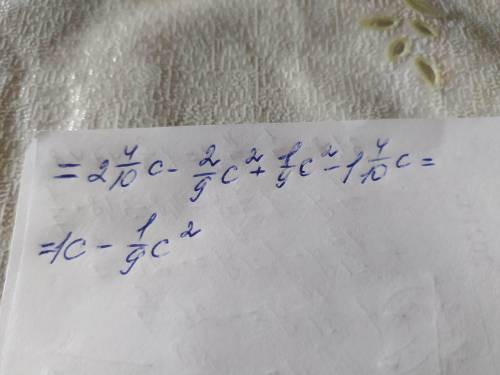 = 2 4/10 c - 2/9 c² + 1/9 c² - 1 4/10 c =
= 1c - 1/9 c²